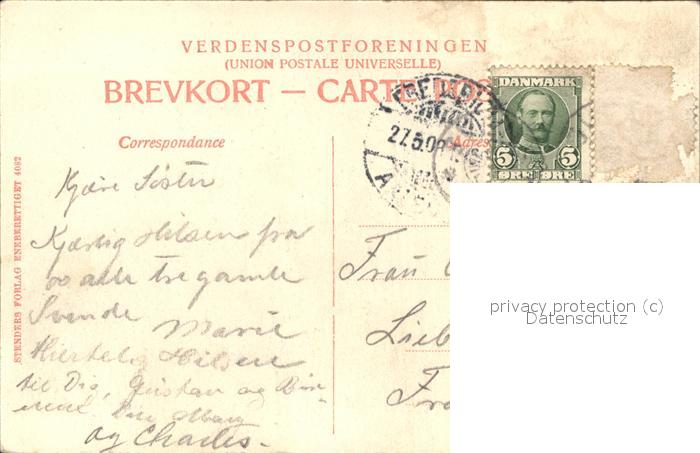 VERDENSPOSTFORENINGEN
(UNION POSTALE UNIVERSELLE)
BREVKORT — CARTE POS
DANMARK
5 5
ØRE ØRE
27.5.09
Correspondance
Adres
STENDERS FORLAG ENEBERETTIGET 4082
Kjære Søster
Kjærlig Hilsen fra
os alle tre gamle
Svende
Marie
Hjertelig Hilsen
til Dig, Gustav og Bør-
og Charles.
Frau
Lieb
Fra
privacy protection (c)
Datenschutz